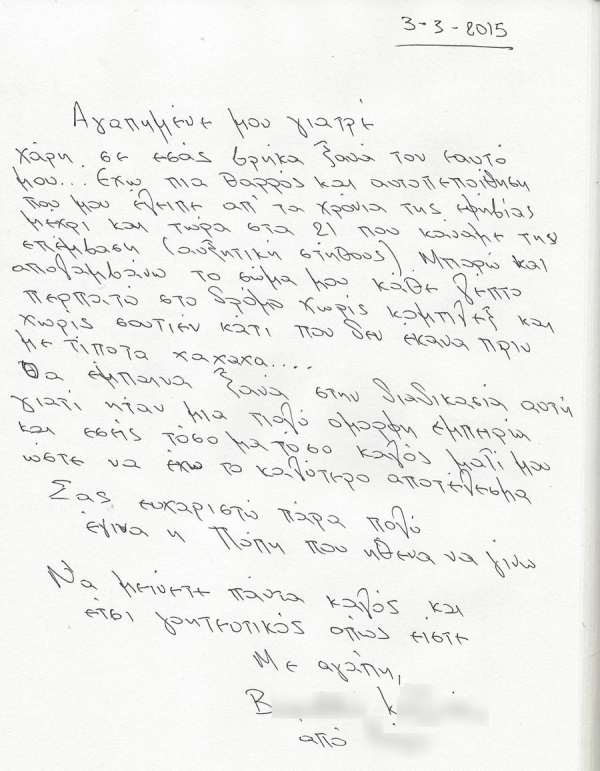 3-3-2015
Αγαπημένε μου γιατρέ
χάρη σε εσάς βρήκα ξανά τον εαυτό
μου... Εχω πια θαρρός και αυτοπεποίθηση
που μου έλειπε απ' τα χρονια της εφηβίας
μέχρι και τώρα στα 21 που καναμε την
επέμβαση (αυξητική στήθους) Μπορώ και
απολαμβάνω το σώμα μου κάθε λεπτο
περπατώ στο δρόμο χωρίς κομπλεξ και
χωρίς σουτιεν κάτι που δεν έκανα πριν
με τίποτα χαχαχα....
Θα έμπαινα ξανά στην διαδικασία αυτή
γιατί ηταν μια πολύ ομορφη εμπειρία
και εσείς τόσο μα τοσο καλός μαζί μου
ώστε να έχω το καλύτερο αποτέλεσμα
Σας ευχαριστώ πάρα πολύ
έγινα η Πόπη που ηθενα να γίνω
Να μείνετε πάντα καλός και
έτσι γοητευτικός οπως είστε
Με αγάπη,
Β Κ
από